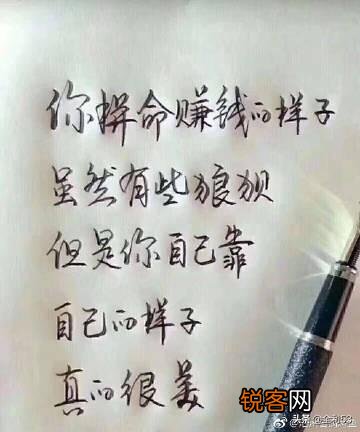 你拼命赚钱的样子
虽然有些狼狈
但是你自己靠
自己的样子
真的很美
锐客网
头条 @金利53